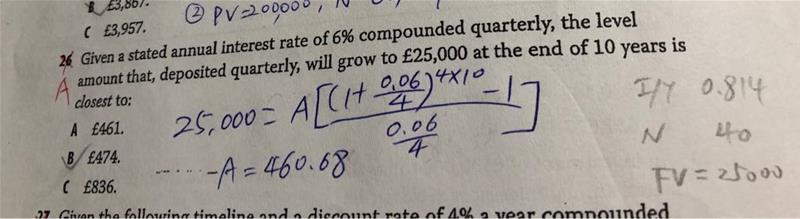 B £3,867.
② PV=200,000, N
C £3,957.
26 Given a stated annual interest rate of 6% compounded quarterly, the level
A amount that, deposited quarterly, will grow to £25,000 at the end of 10 years is
closest to:
A £461.
B £474.
C £836.
25,000 = A[(1+ 0.06/4)^4×10 -1 / 0.06/4]
------ -A = 460.68
I/Y 0.814
N 40
FV = 25000
27 Given the following timeline and a discount rate of 4% a year compounded